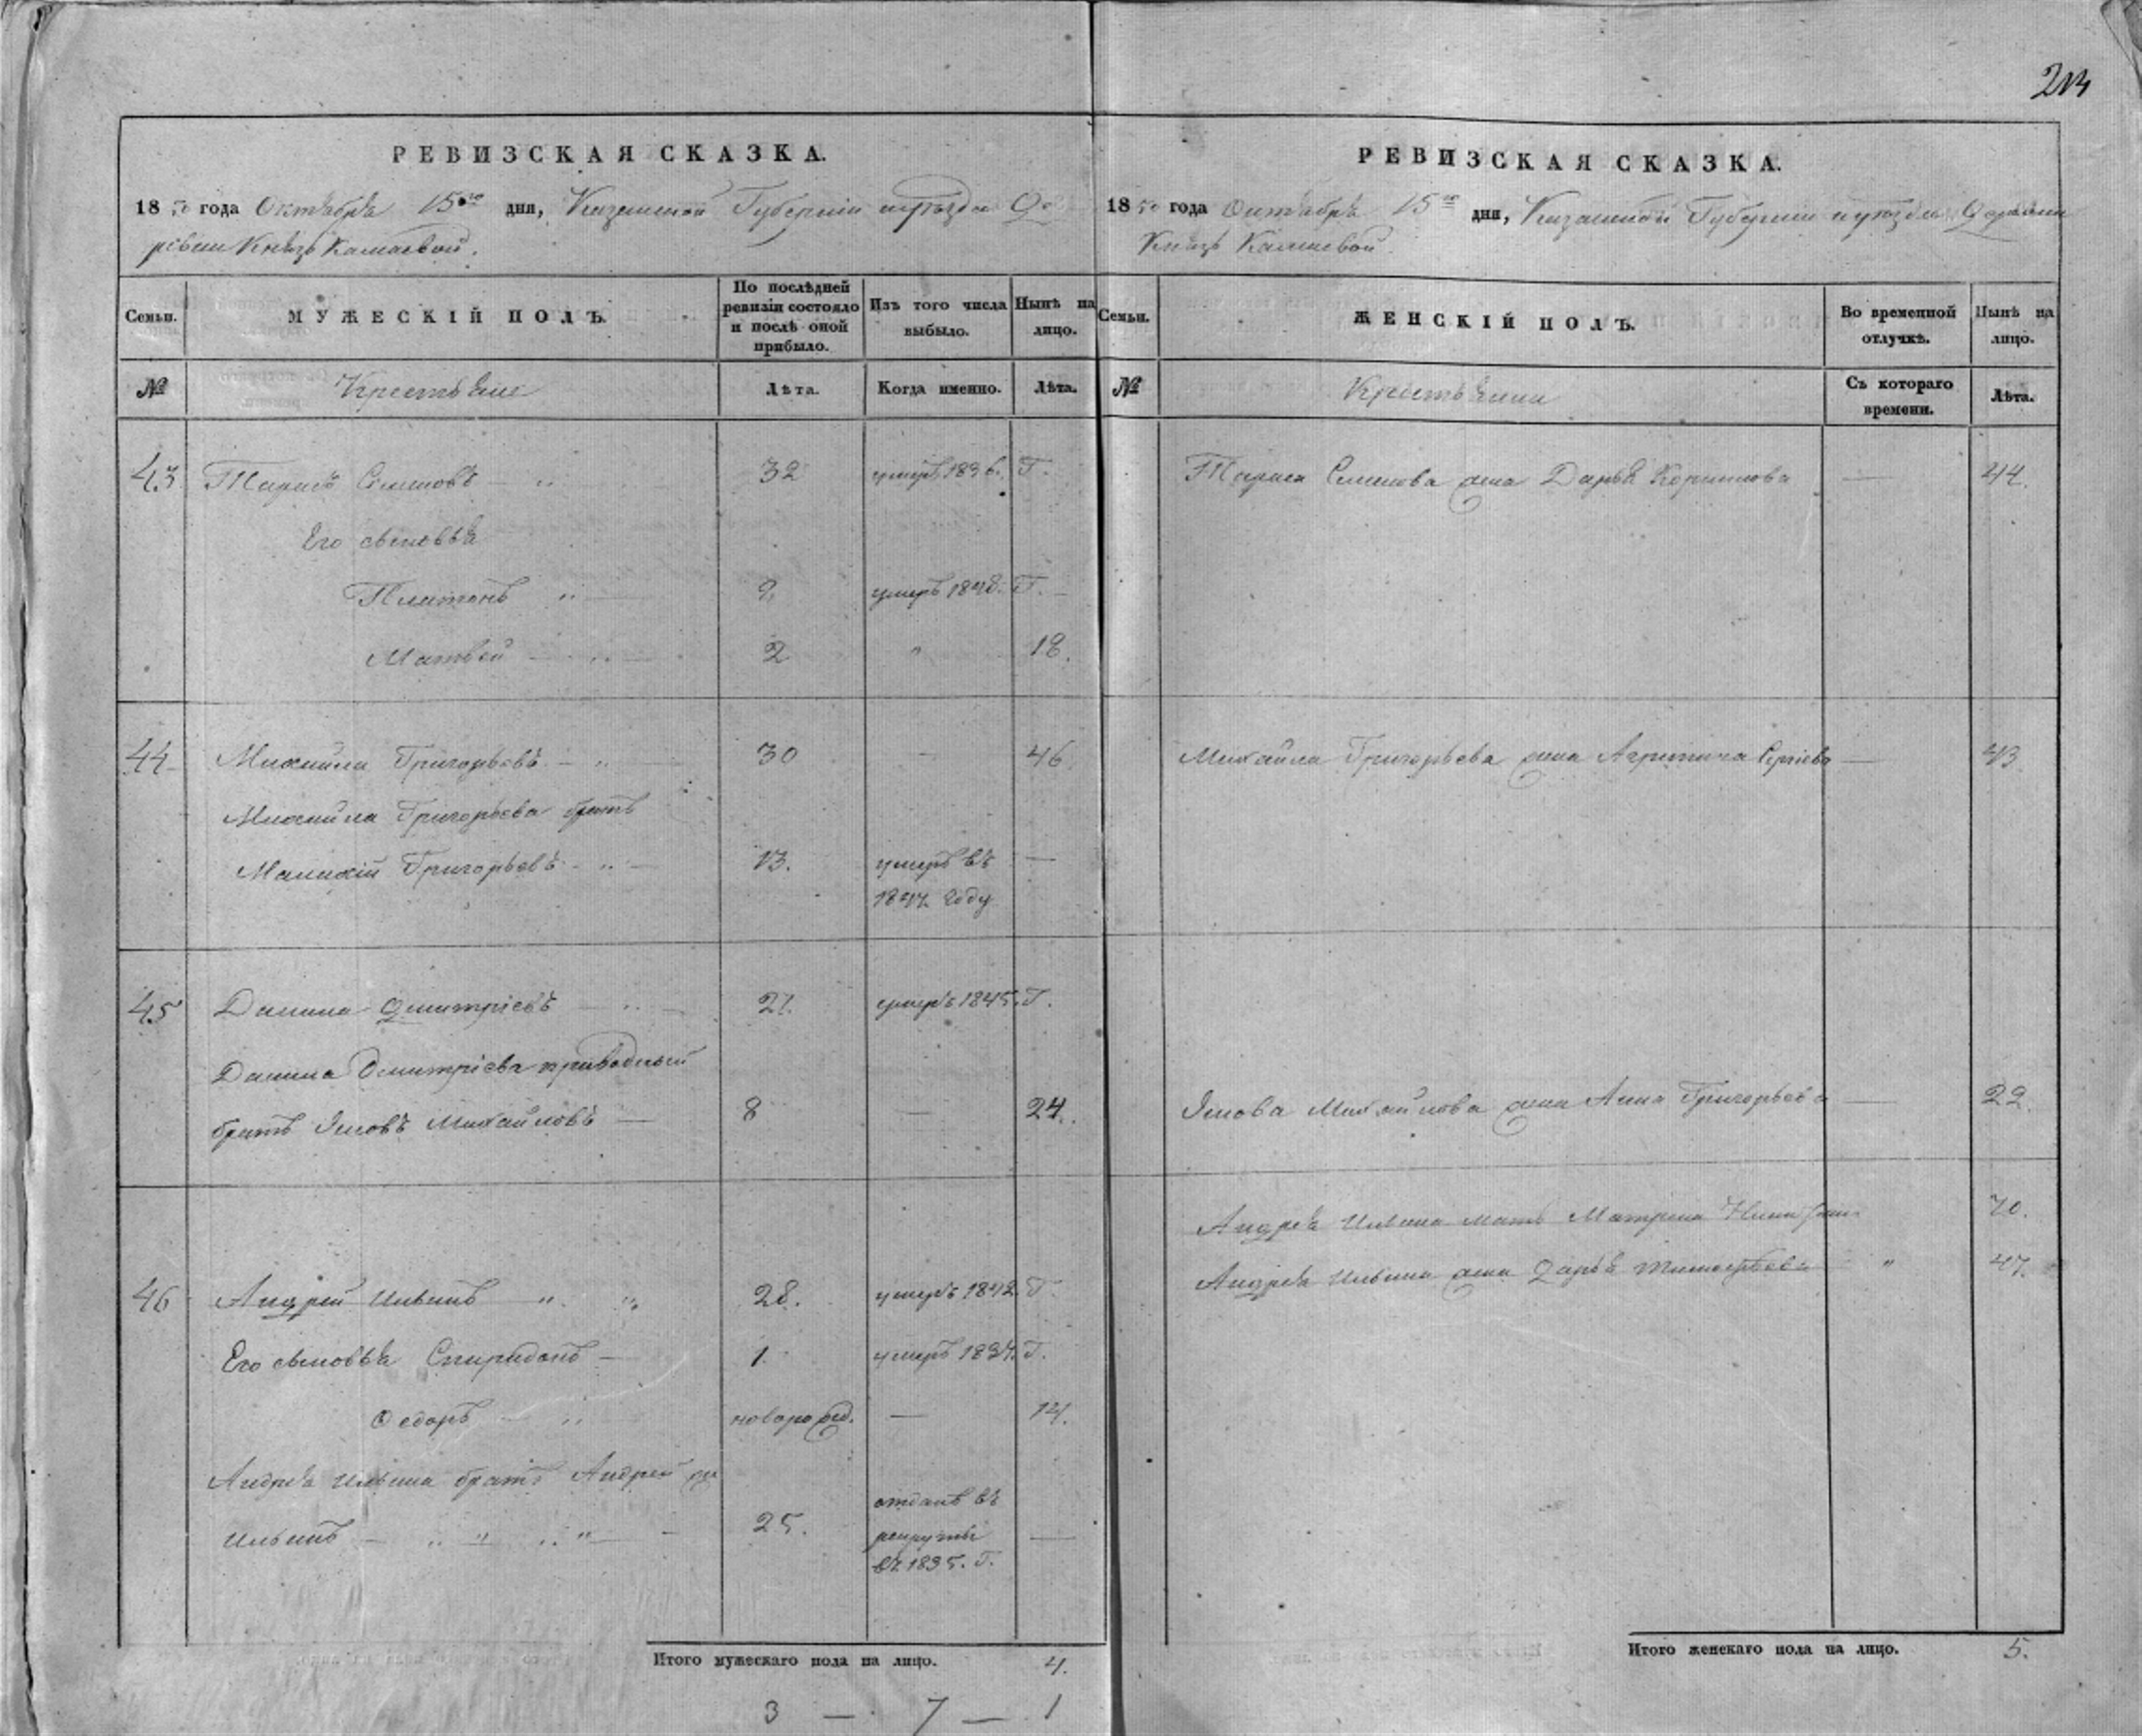 214
РЕВИЗСКАЯ СКАЗКА.
1850 года Октября 15го дня, Казанской Губерніи и уѣзда Де
ревни Князь Камаевой.
Семьи.
МУЖЕСКІЙ ПОЛЪ.
По послѣдней ревизіи состояло и послѣ оной прибыло.
Изъ того числа выбыло.
Нынѣ на лицо.
№
Крестьяне
Лѣта.
Когда именно.
Лѣта.
43 Семеновъ 32 умеръ 1836. Г.
Его сыновья
Платонъ 9 умеръ 1840. Г.
Матвей 2 " 18.
44 Михаила Григорьевъ 30 — 46
Михаила Григорьева братъ
Григорьевъ 13. умеръ въ —
году
45 Данила Дмитріевъ 21. умеръ 1845. Г.
Данила Дмитріева приводный
братъ Яковъ Михайловъ — 8 — 24.
46 Андрей Ильинъ " " 28. умеръ 1842. Г.
Его сыновья Спиридонъ — 1. умеръ Г.
Ѳедоръ новорожд. — 14.
Андрея Ильина братъ Андрей же
Ильинъ 25. отданъ въ
рекруты —
въ 1835. Г.
Итого мужескаго пола на лицо. 4.
3 — 7 — 1
РЕВИЗСКАЯ СКАЗКА.
1850 года Октября 15го дня, Казанской Губерніи и уѣзда Деревни
Князь Камаевой.
Семьи.
ЖЕНСКІЙ ПОЛЪ.
Во временной отлучкѣ.
Нынѣ на лицо.
№
Крестьянки
Съ котораго времени.
Лѣта.
Семенова жена Дарья — 44.
Михайла Григорьева жена — 43
Якова Михайлова жена Анна Григорьева — 22.
Андрея Ильина мать Матрена 70.
Андрея Ильина жена Дарья Тимофѣева " 47.
Итого женскаго пола на лицо. 5.